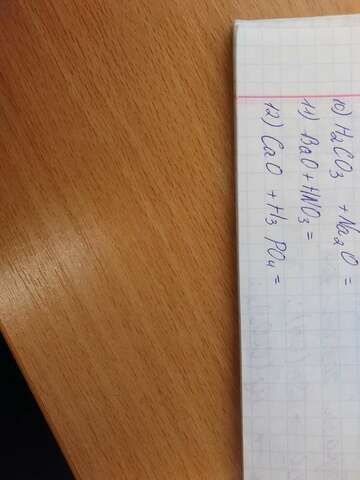 10) H₂CO₃ + Na₂O =
11) BaO + HNO₃ =
12) CaO + H₃PO₄ =